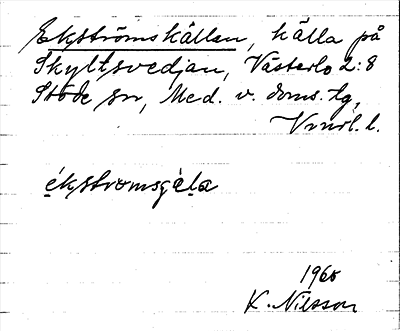 Ekströmskällan, källa på
Skyltsvedjan, Västerlo 2:8
Stöde sn, Med. v. doms. tg,
Vnrl. l.
ékstromsçȧla
1960
K. Nilsson